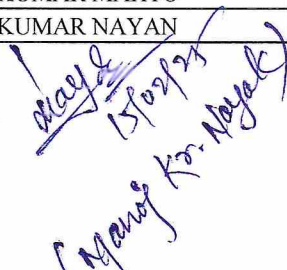 KUMAR NAYAN
15/02/25
(Manoj Kr. Nayak)